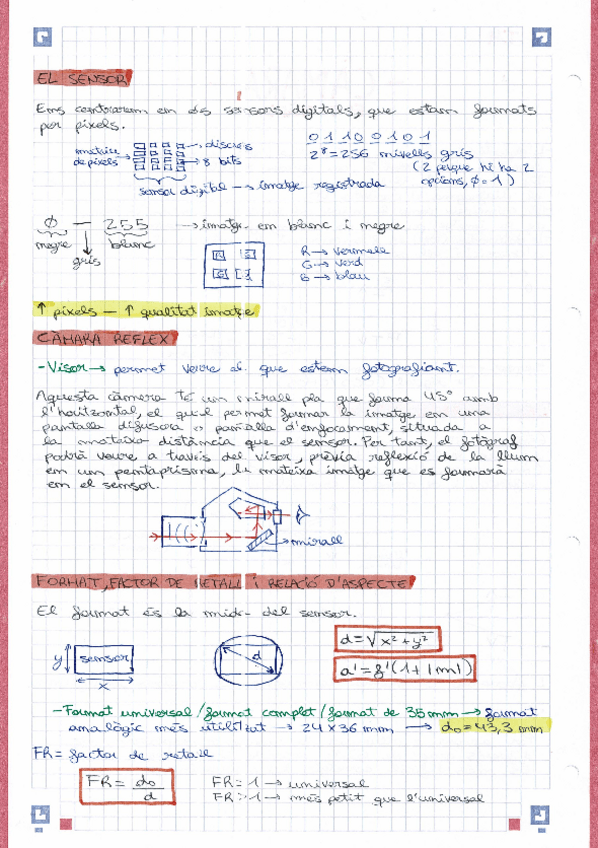 EL SENSOR
Ens centrarem en els sensors digitals, que estan formats
per píxels.
matriu de píxels → discos
→ 8 bits
sensor digital → imatge registrada
0 1 1 0 0 1 0 1
2⁸ = 256 nivells gris
(2 perquè hi ha 2
opcions, Ø o 1)
Ø — 255 → imatge en blanc i negre
negre gris blanc
R → vermell
G → verd
B → blau
↑ píxels — ↑ qualitat imatge
CÀMARA REFLEX
- Visor → permet veure el que estem fotografiant.
Aquesta càmera té un mirall pla que forma 45° amb
l'horitzontal, el qual permet formar la imatge en una
pantalla difusora o pantalla d'enfocament, situada a
la mateixa distància que el sensor. Per tant, el fotògraf
podrà veure a través del visor, prèvia reflexió de la llum
en un pentaprisma, la mateixa imatge que es formarà
en el sensor.
mirall
FORMAT, FACTOR DE RETALL i RELACIÓ D'ASPECTE
El format és la mida del sensor.
y sensor x
d
d = √x² + y²
a' = f'(1 + |m|)
- Format universal / format complet / format de 35 mm → format
analògic més utilitzat → 24 x 36 mm → d₀ = 43,3 mm
FR = factor de retall
FR = d₀/d
FR = 1 → universal
FR > 1 → més petit que l'universal